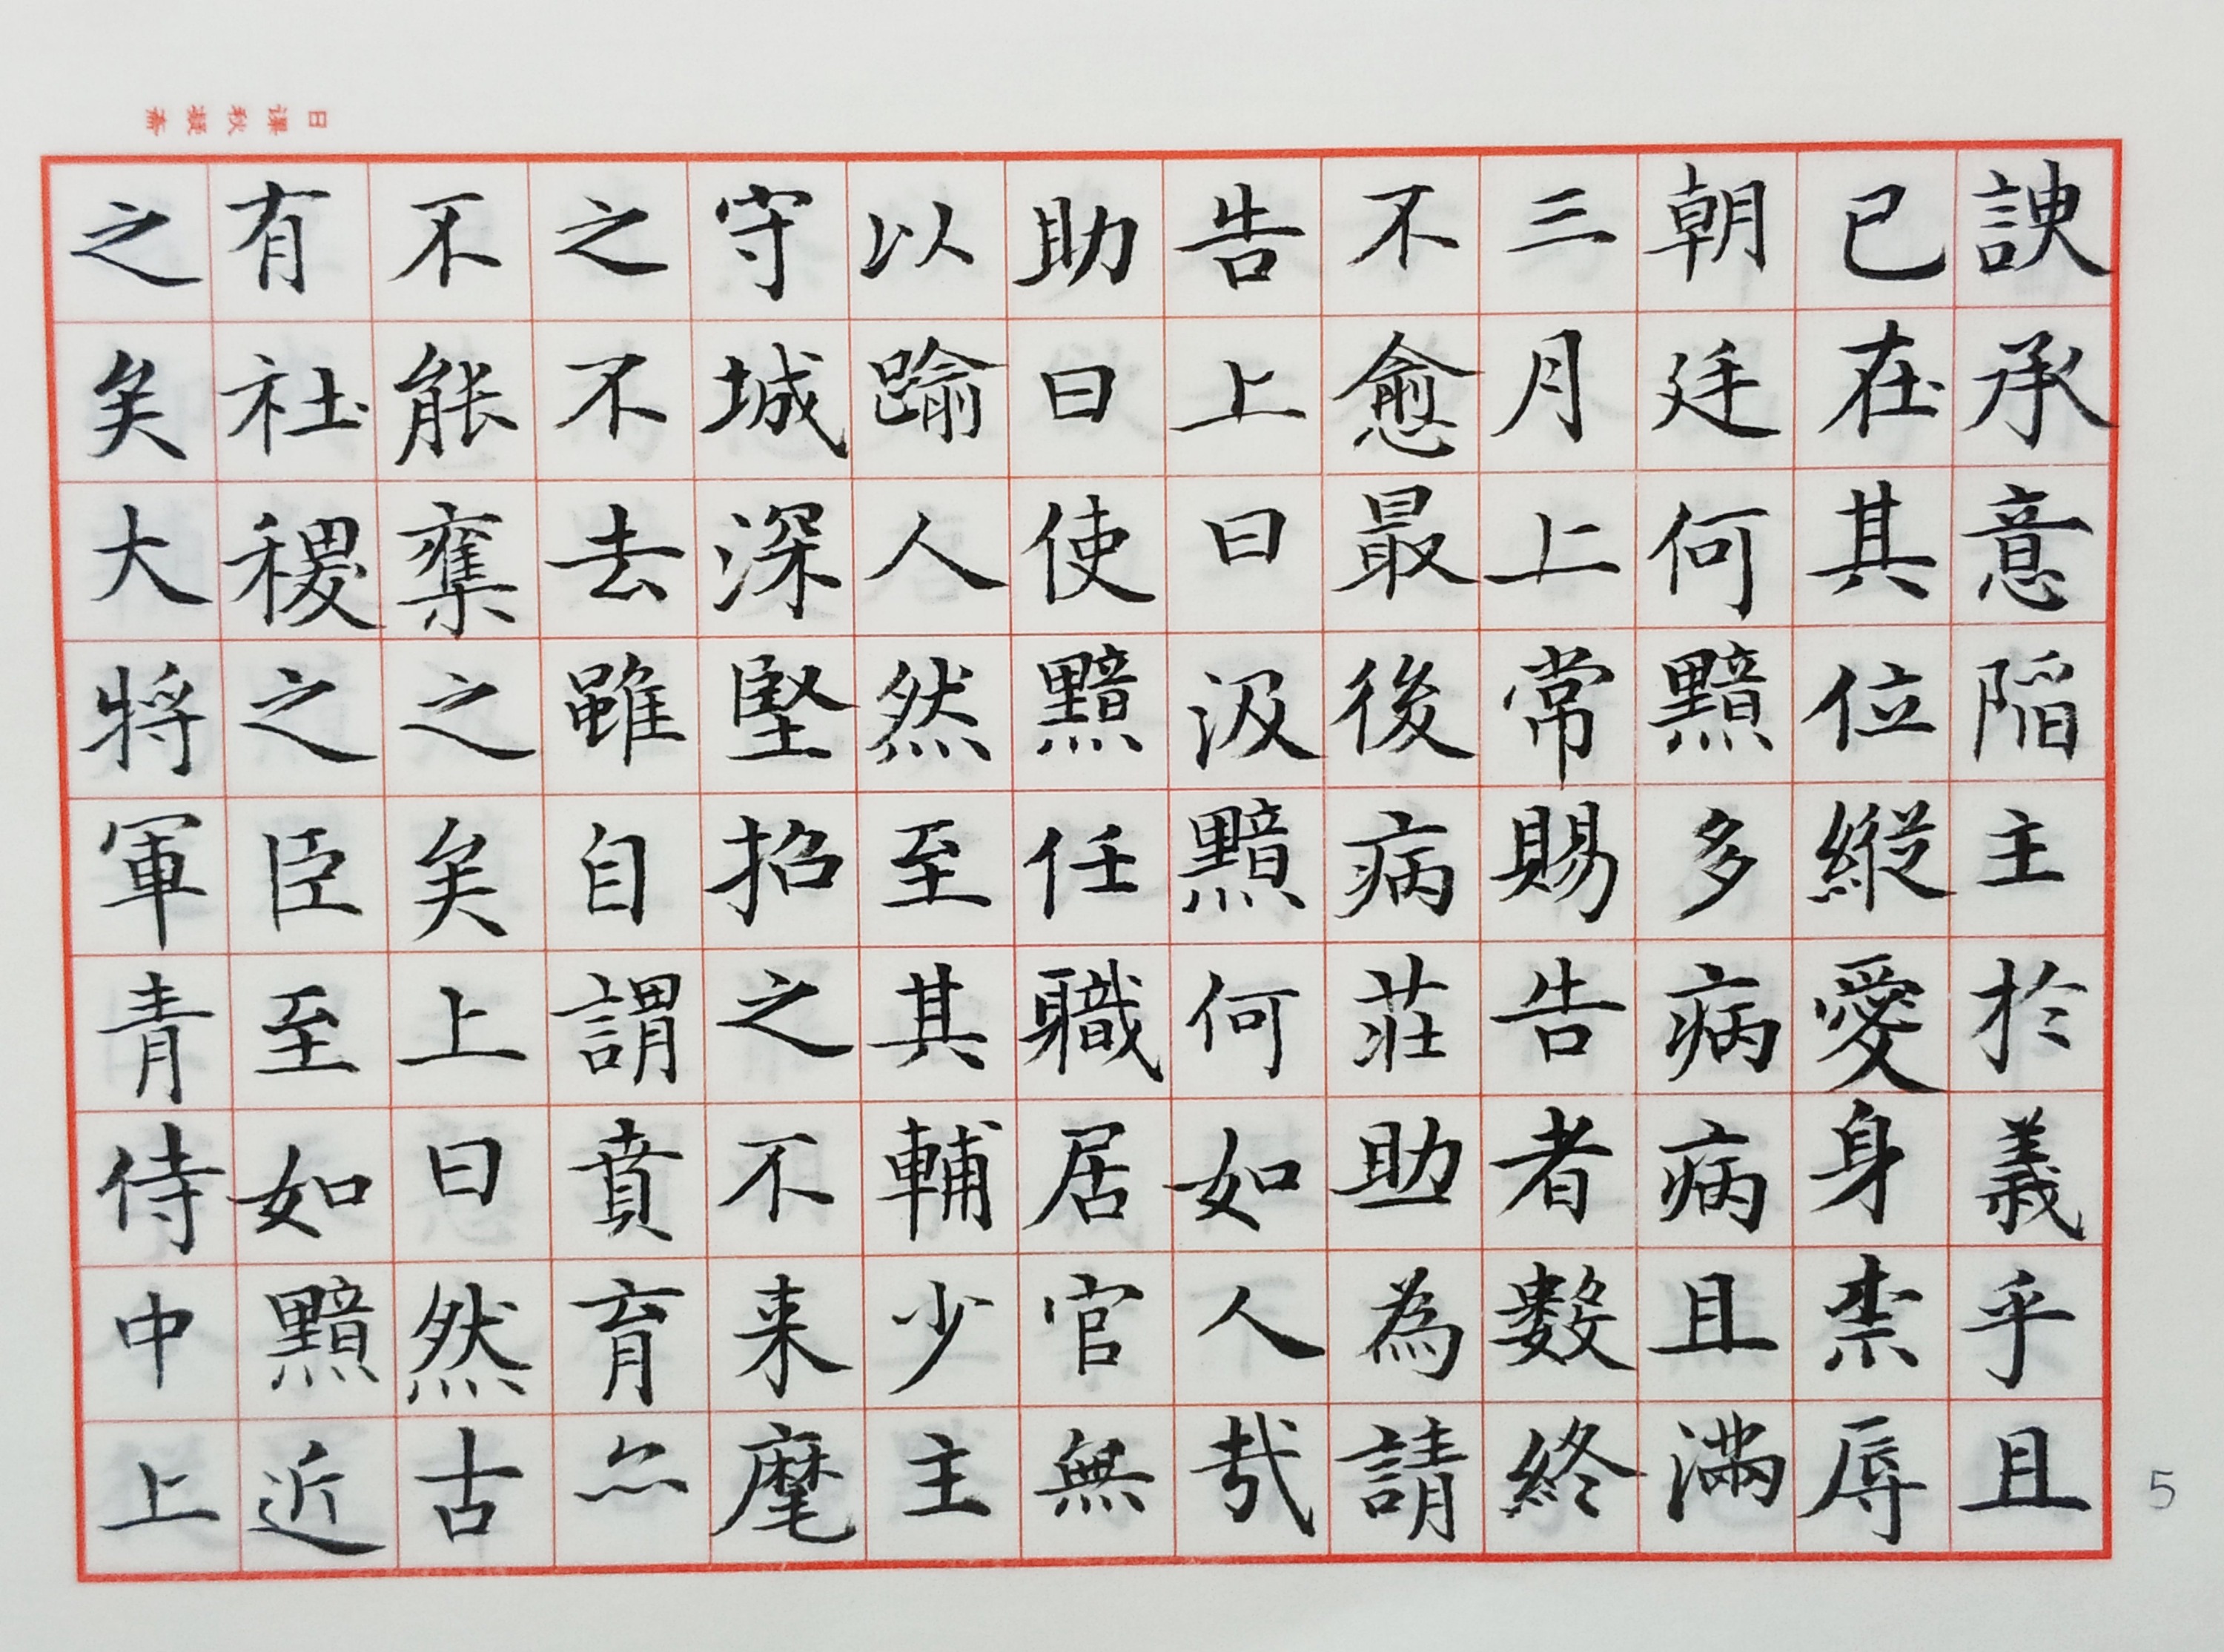 諛承意陷主於義乎且
已在其位縱愛身柰辱
朝廷何黯多病病且滿
三月上常賜告者數終
不愈最後病莊助為請
告上曰汲黯何如人哉
助曰使黯任職居官無
以踰人然至其輔少主
守城深堅招之不来麾
之不去雖自謂賁育亦
不能奪之矣上曰然古
有社稷之臣至如黯近
之矣大將軍青侍中上
5